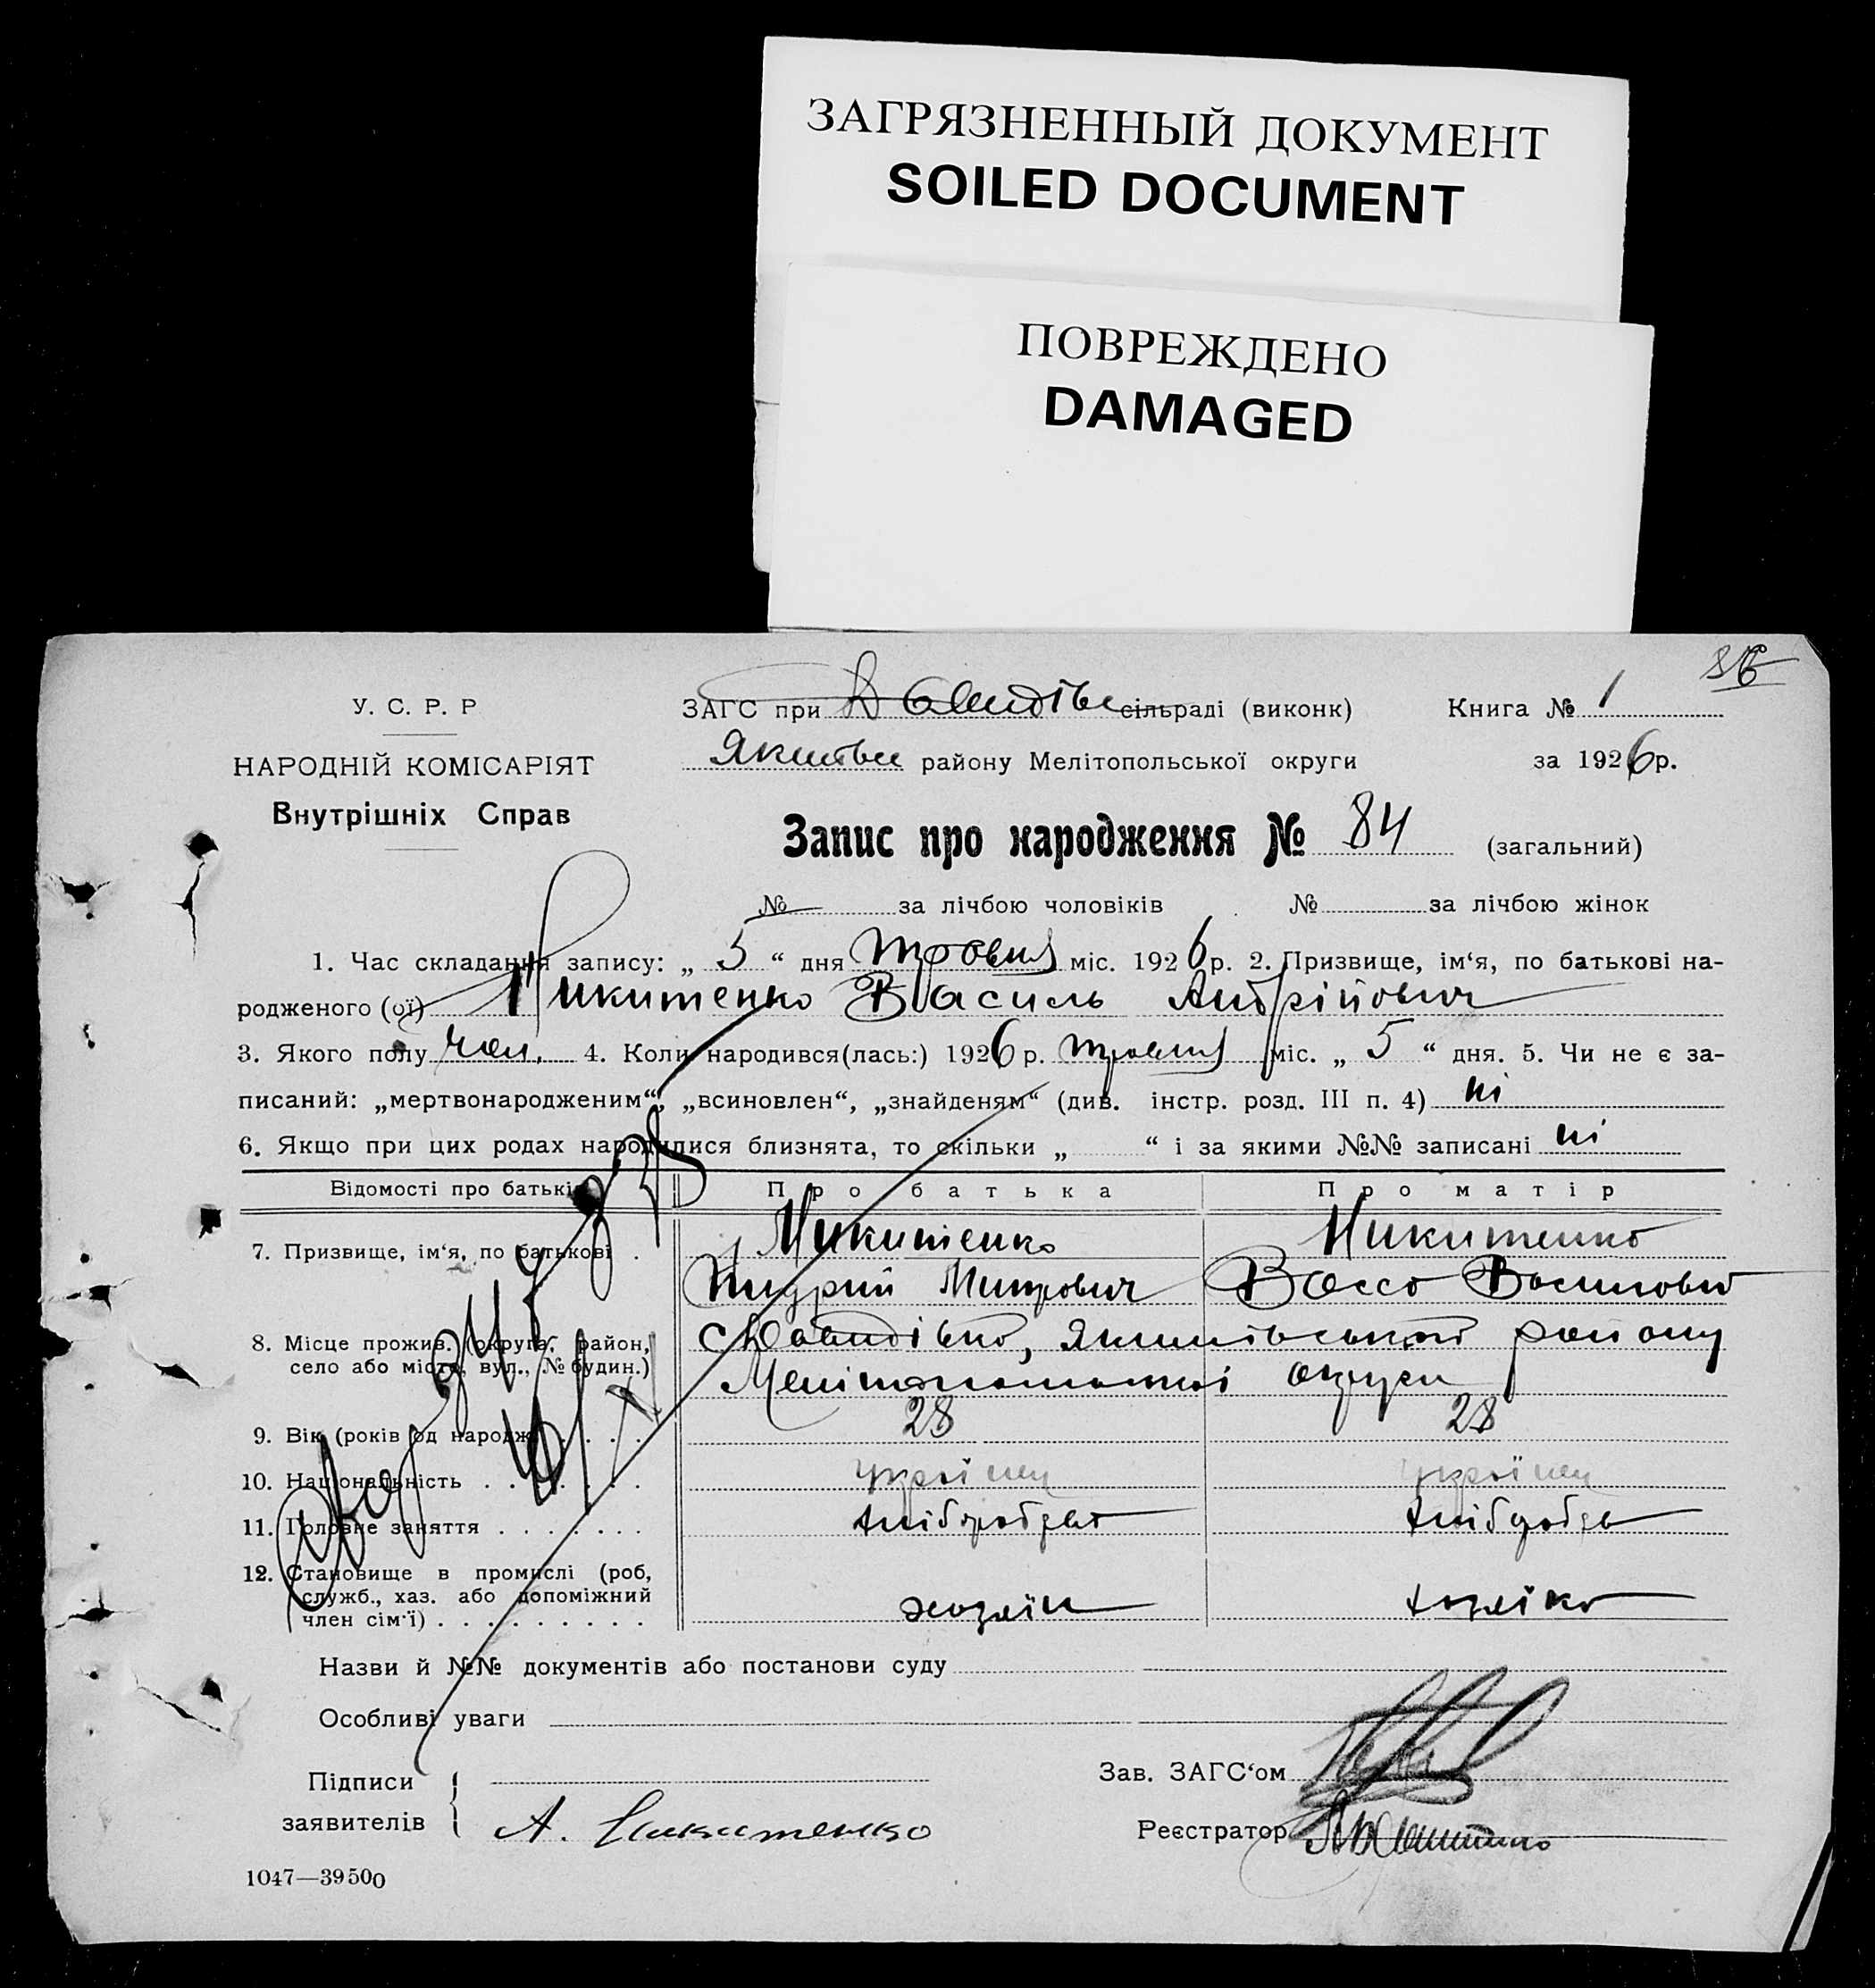 ЗАГРЯЗНЕННЫЙ ДОКУМЕНТ
SOILED DOCUMENT
ПОВРЕЖДЕНО
DAMAGED
86
У. С. Р. Р
ЗАГС при сільраді (виконк)
Книга № 1
НАРОДНІЙ КОМІСАРІЯТ
району Мелітопольської округи
за 1926 р.
Внутрішніх Справ
Запис про народження № 84 (загальний)
№ за лічбою чоловіків № за лічбою жінок
1. Час складання запису: „ 5 “ дня травня міс. 1926 р. 2. Призвище, ім‘я, по батькові на-
родженого (ої) Никитенко Василь Андрійович
3. Якого полу чол. 4. Коли народився(лась:) 1926 р. травня міс. „ 5 “ дня. 5. Чи не є за-
писаний: „мертвонародженим“, „всиновлен“, „знайденям“ (див. інстр. розд. III п. 4) ні
6. Якщо при цих родах народилися близнята, то скільки „ “ і за якими №№ записані ні
Відомості про батьків Про батька Про матір
7. Призвище, ім‘я, по батькові . Никитенко Никитенко
8. Місце прожив. (округа, район,
село або місто, вул., № будин.) Мелітопольської округи
9. Вік (років од народж.) . . . . 28 28
10. Національність . . . . . . . українец українец
11. Головне заняття . . . . . . . хлібороб
12. Становище в промислі (роб,
служб., хаз. або допоміжний
член сім‘ї) . . . . . . . . . хозяїн хозяїка
Назви й №№ документів або постанови суду
Особливі уваги
Зав. ЗАГС‘ом
Підписи
заявителів А. Никитенко
Реєстратор
1047—39500